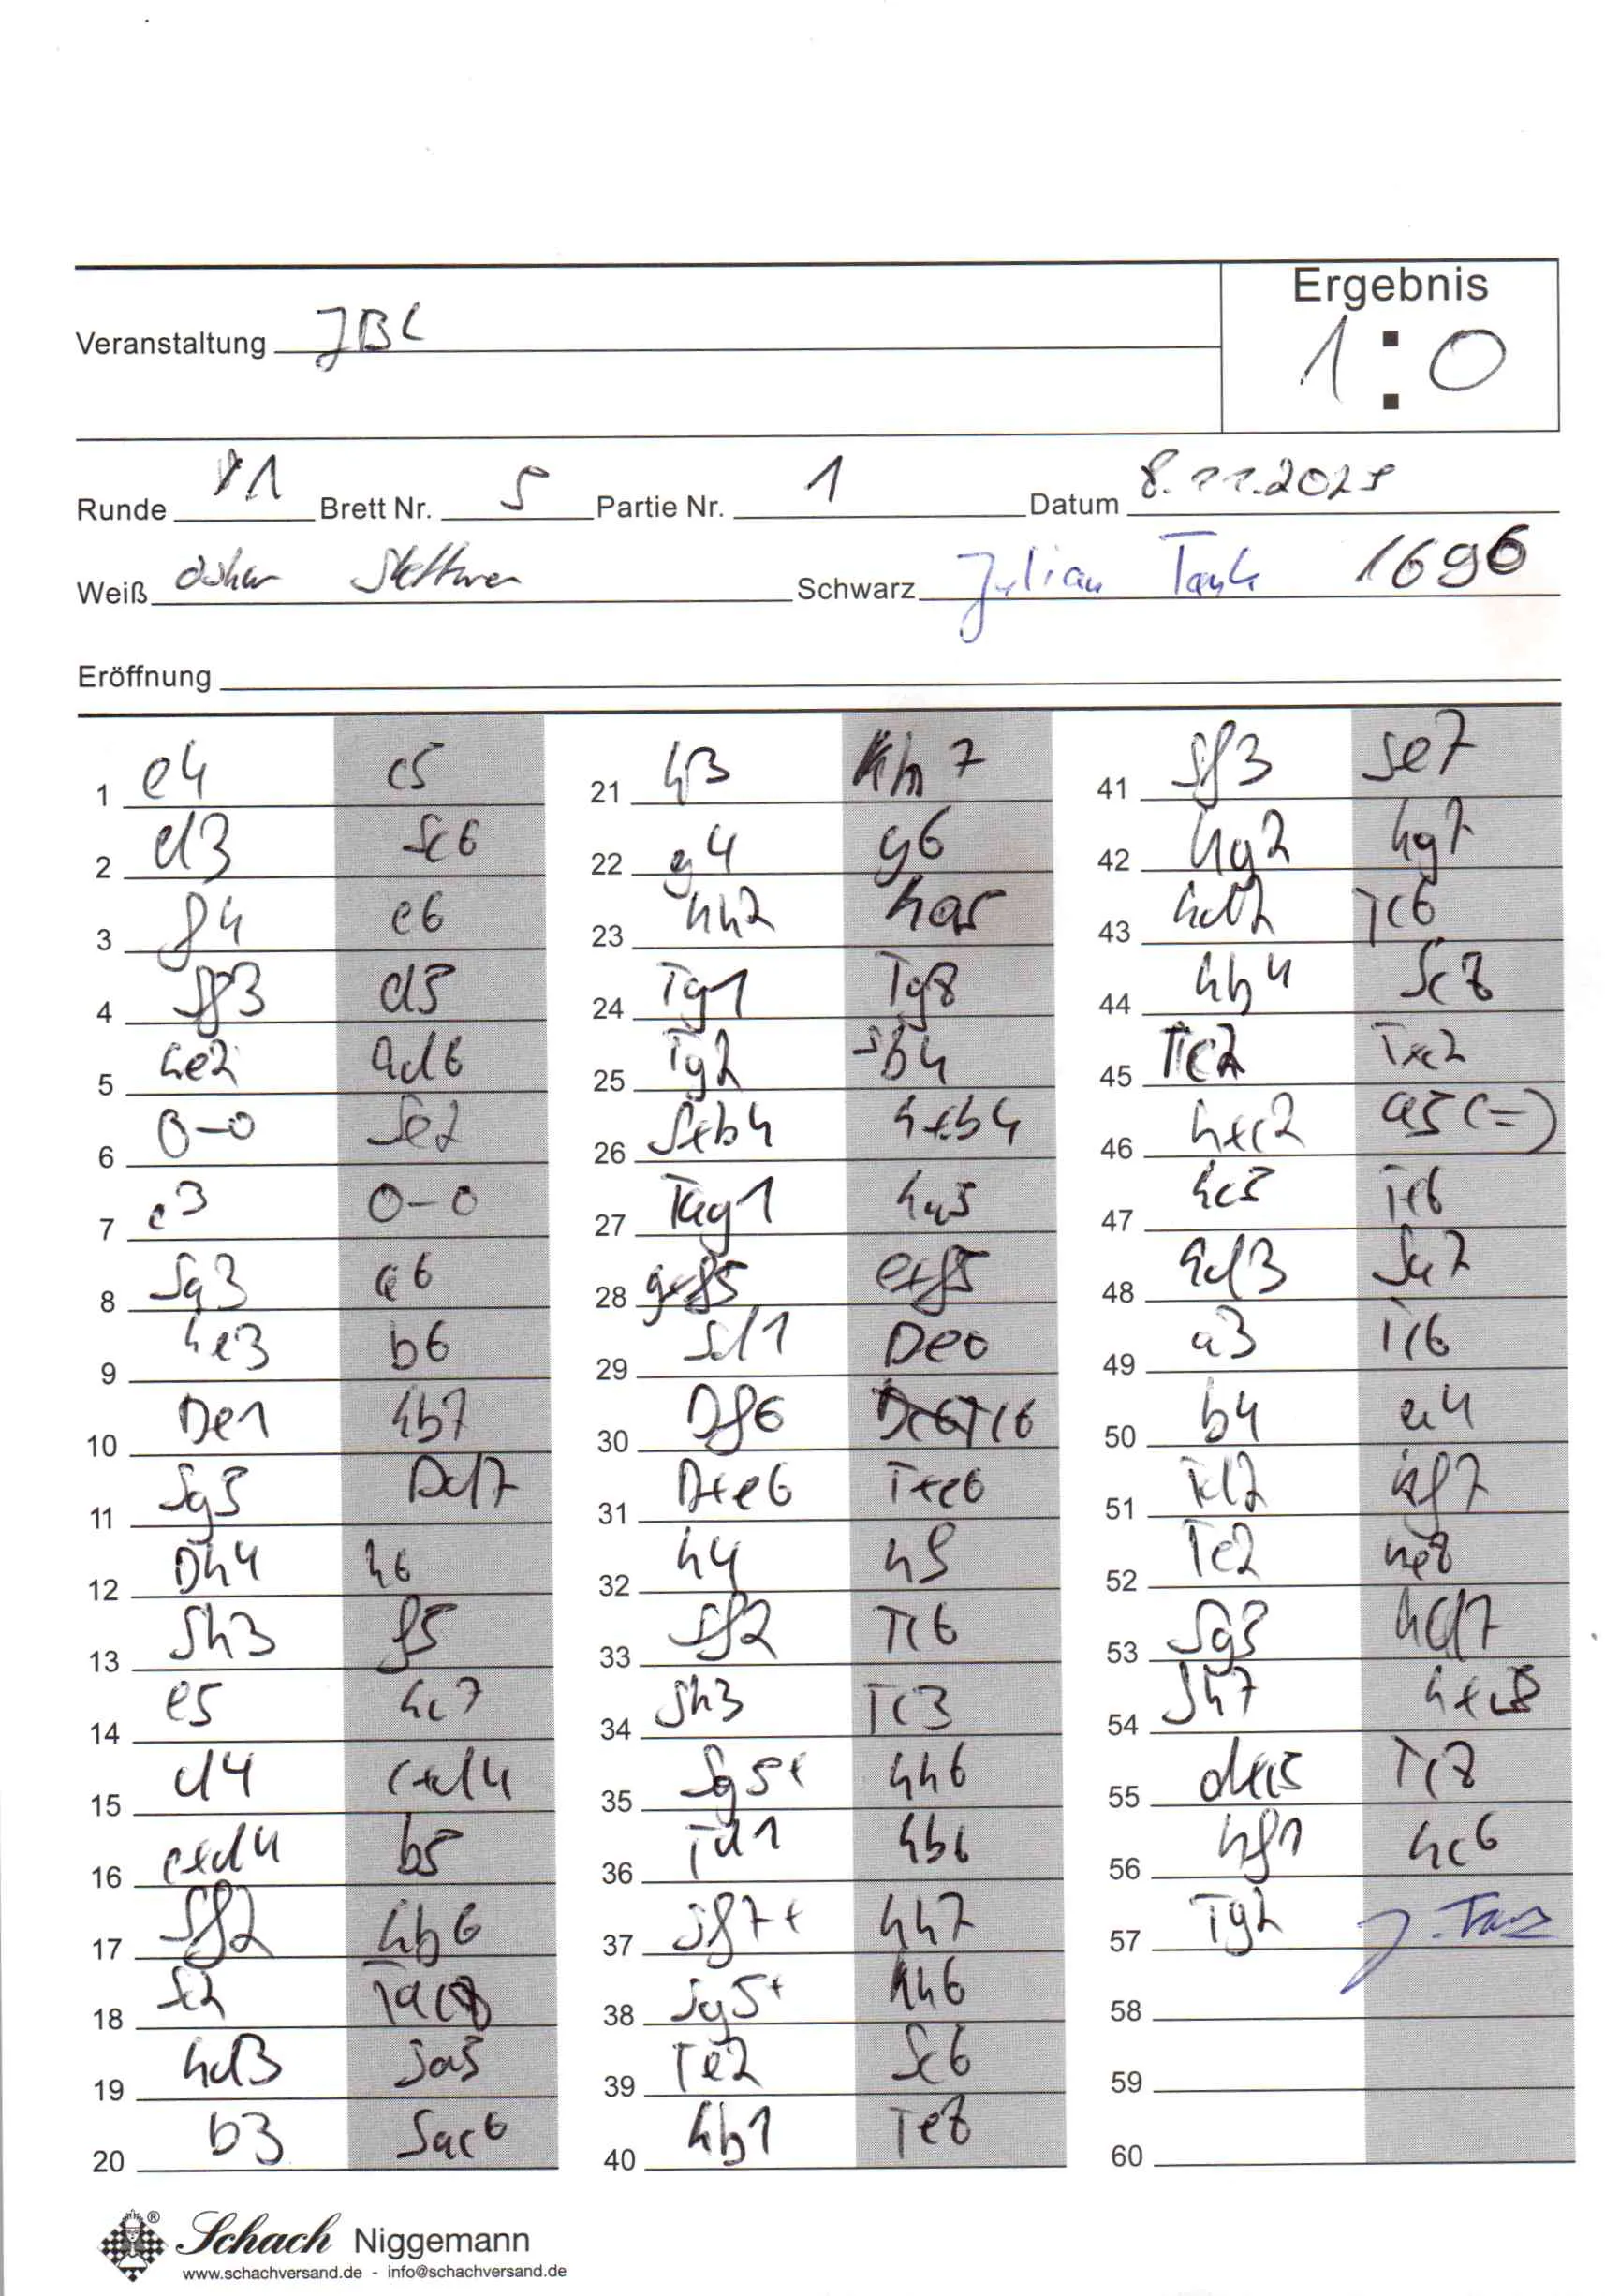 Ergebnis
Veranstaltung JBL
1:0
Runde 1 Brett Nr. 5 Partie Nr. 1 Datum 8.11.2025
Weiß Schwarz Julian 1696
Eröffnung
1 e4 c5
2 d3 Sc6
3 f4 e6
4 Sf3 d5
5 Le2 Ld6
6 0-0 Se7
7 c3 0-0
8 Sa3 a6
9 Le3 b6
10 De1 Lb7
11 Sg5 Dd7
12 Dh4 h6
13 Sh3 f5
14 e5 Lc7
15 d4 cxd4
16 cxd4 b5
17 Sf2 Lb6
18 Sc2 Tac8
19 Ld3 Sa5
20 b3 Sac6
21 h3 Kh7
22 g4 g6
23 Kh2 La5
24 Tg1 Tg8
25 Tg2 Sb4
26 Sxb4 Lxb4
27 Tag1 La5
28 gxf5 exf5
29 Sd1 De6
30 Df6 Tc6
31 Dxe6 Txe6
32 h4 h5
33 Sf2 Tc6
34 Sh3 Tc3
35 Sg5+ Kh6
36 Td1 Lb6
37 Sf7+ Kh7
38 Sg5+ Kh6
39 Te2 Sc6
40 Lb1 Te8
41 Sf3 Se7
42 Kg2 Kg7
43 Ld2 Tc6
44 Lb4 Sc8
45 Tc2 Txc2
46 Lxc2 a5 (=)
47 Lc5 Te6
48 Ld3 Sa7
49 a3 Tc6
50 b4 a4
51 Td2 Kf7
52 Tc2 Ke8
53 Sg5 Kd7
54 Sh7 Lxc5
55 dxc5 Tc8
56 Kf1 Lc6
57 Tg2
58
59
60
Schach Niggemann
www.schachversand.de - info@schachversand.de